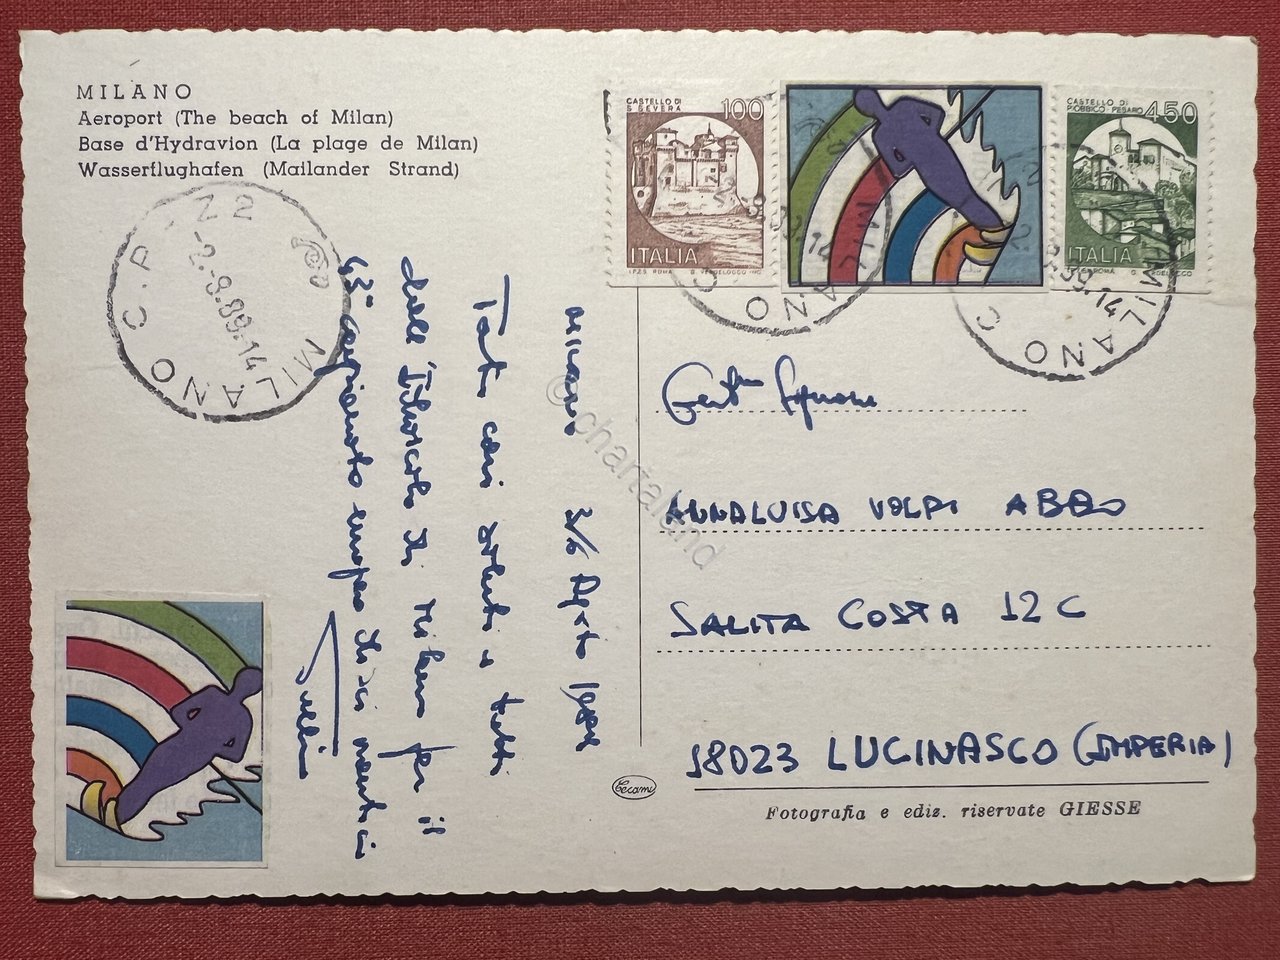 MILANO
Aeroport (The beach of Milan)
Base d'Hydravion (La plage de Milan)
Wasserflughafen (Mailander Strand)
MILANO C.P. Z2
-2.-9.89.14
CASTELLO DI
S. SEVERA 100
ITALIA
I.P.Z.S. ROMA
CASTELLO DI
PIOBBICO-PESARO 450
ITALIA
MILANO C
MILANO C
Milano
Agosto
Tanti cari saluti a tutti
dall'Idroscalo di Milano per il
Gent.ma Signora
ANNALUISA VOLPI ABBO
SALITA COSTA 12 C
18023 LUCINASCO (IMPERIA)
Cecami
Fotografia e ediz. riservate GIESSE
© chartaland